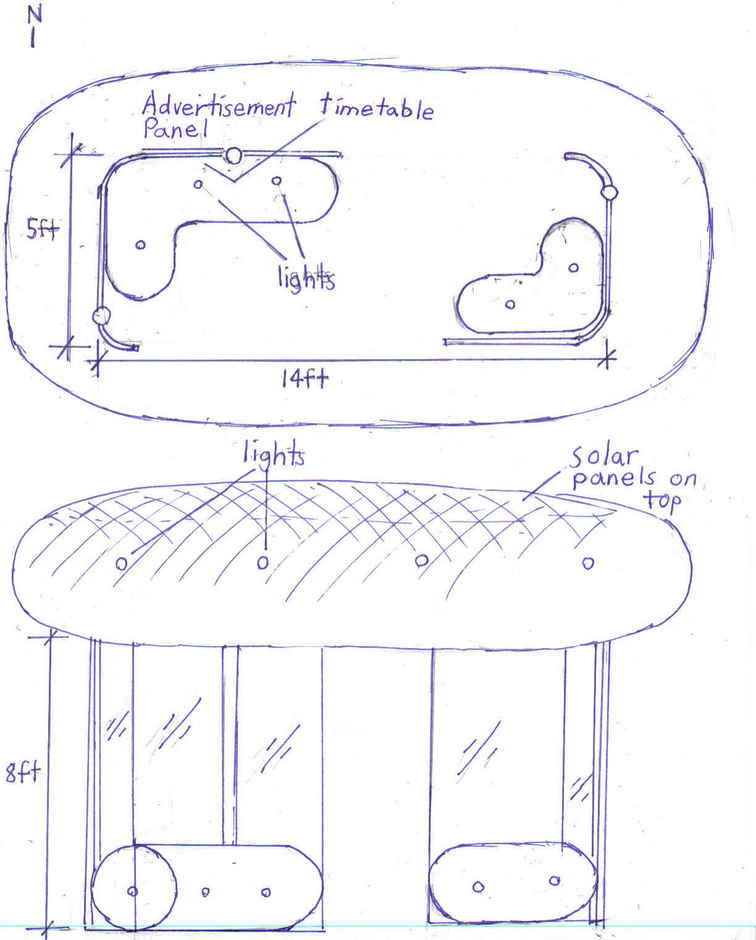 N
Advertisement timetable
Panel
5ft
lights
14ft
lights
solar
panels on
top
8ft